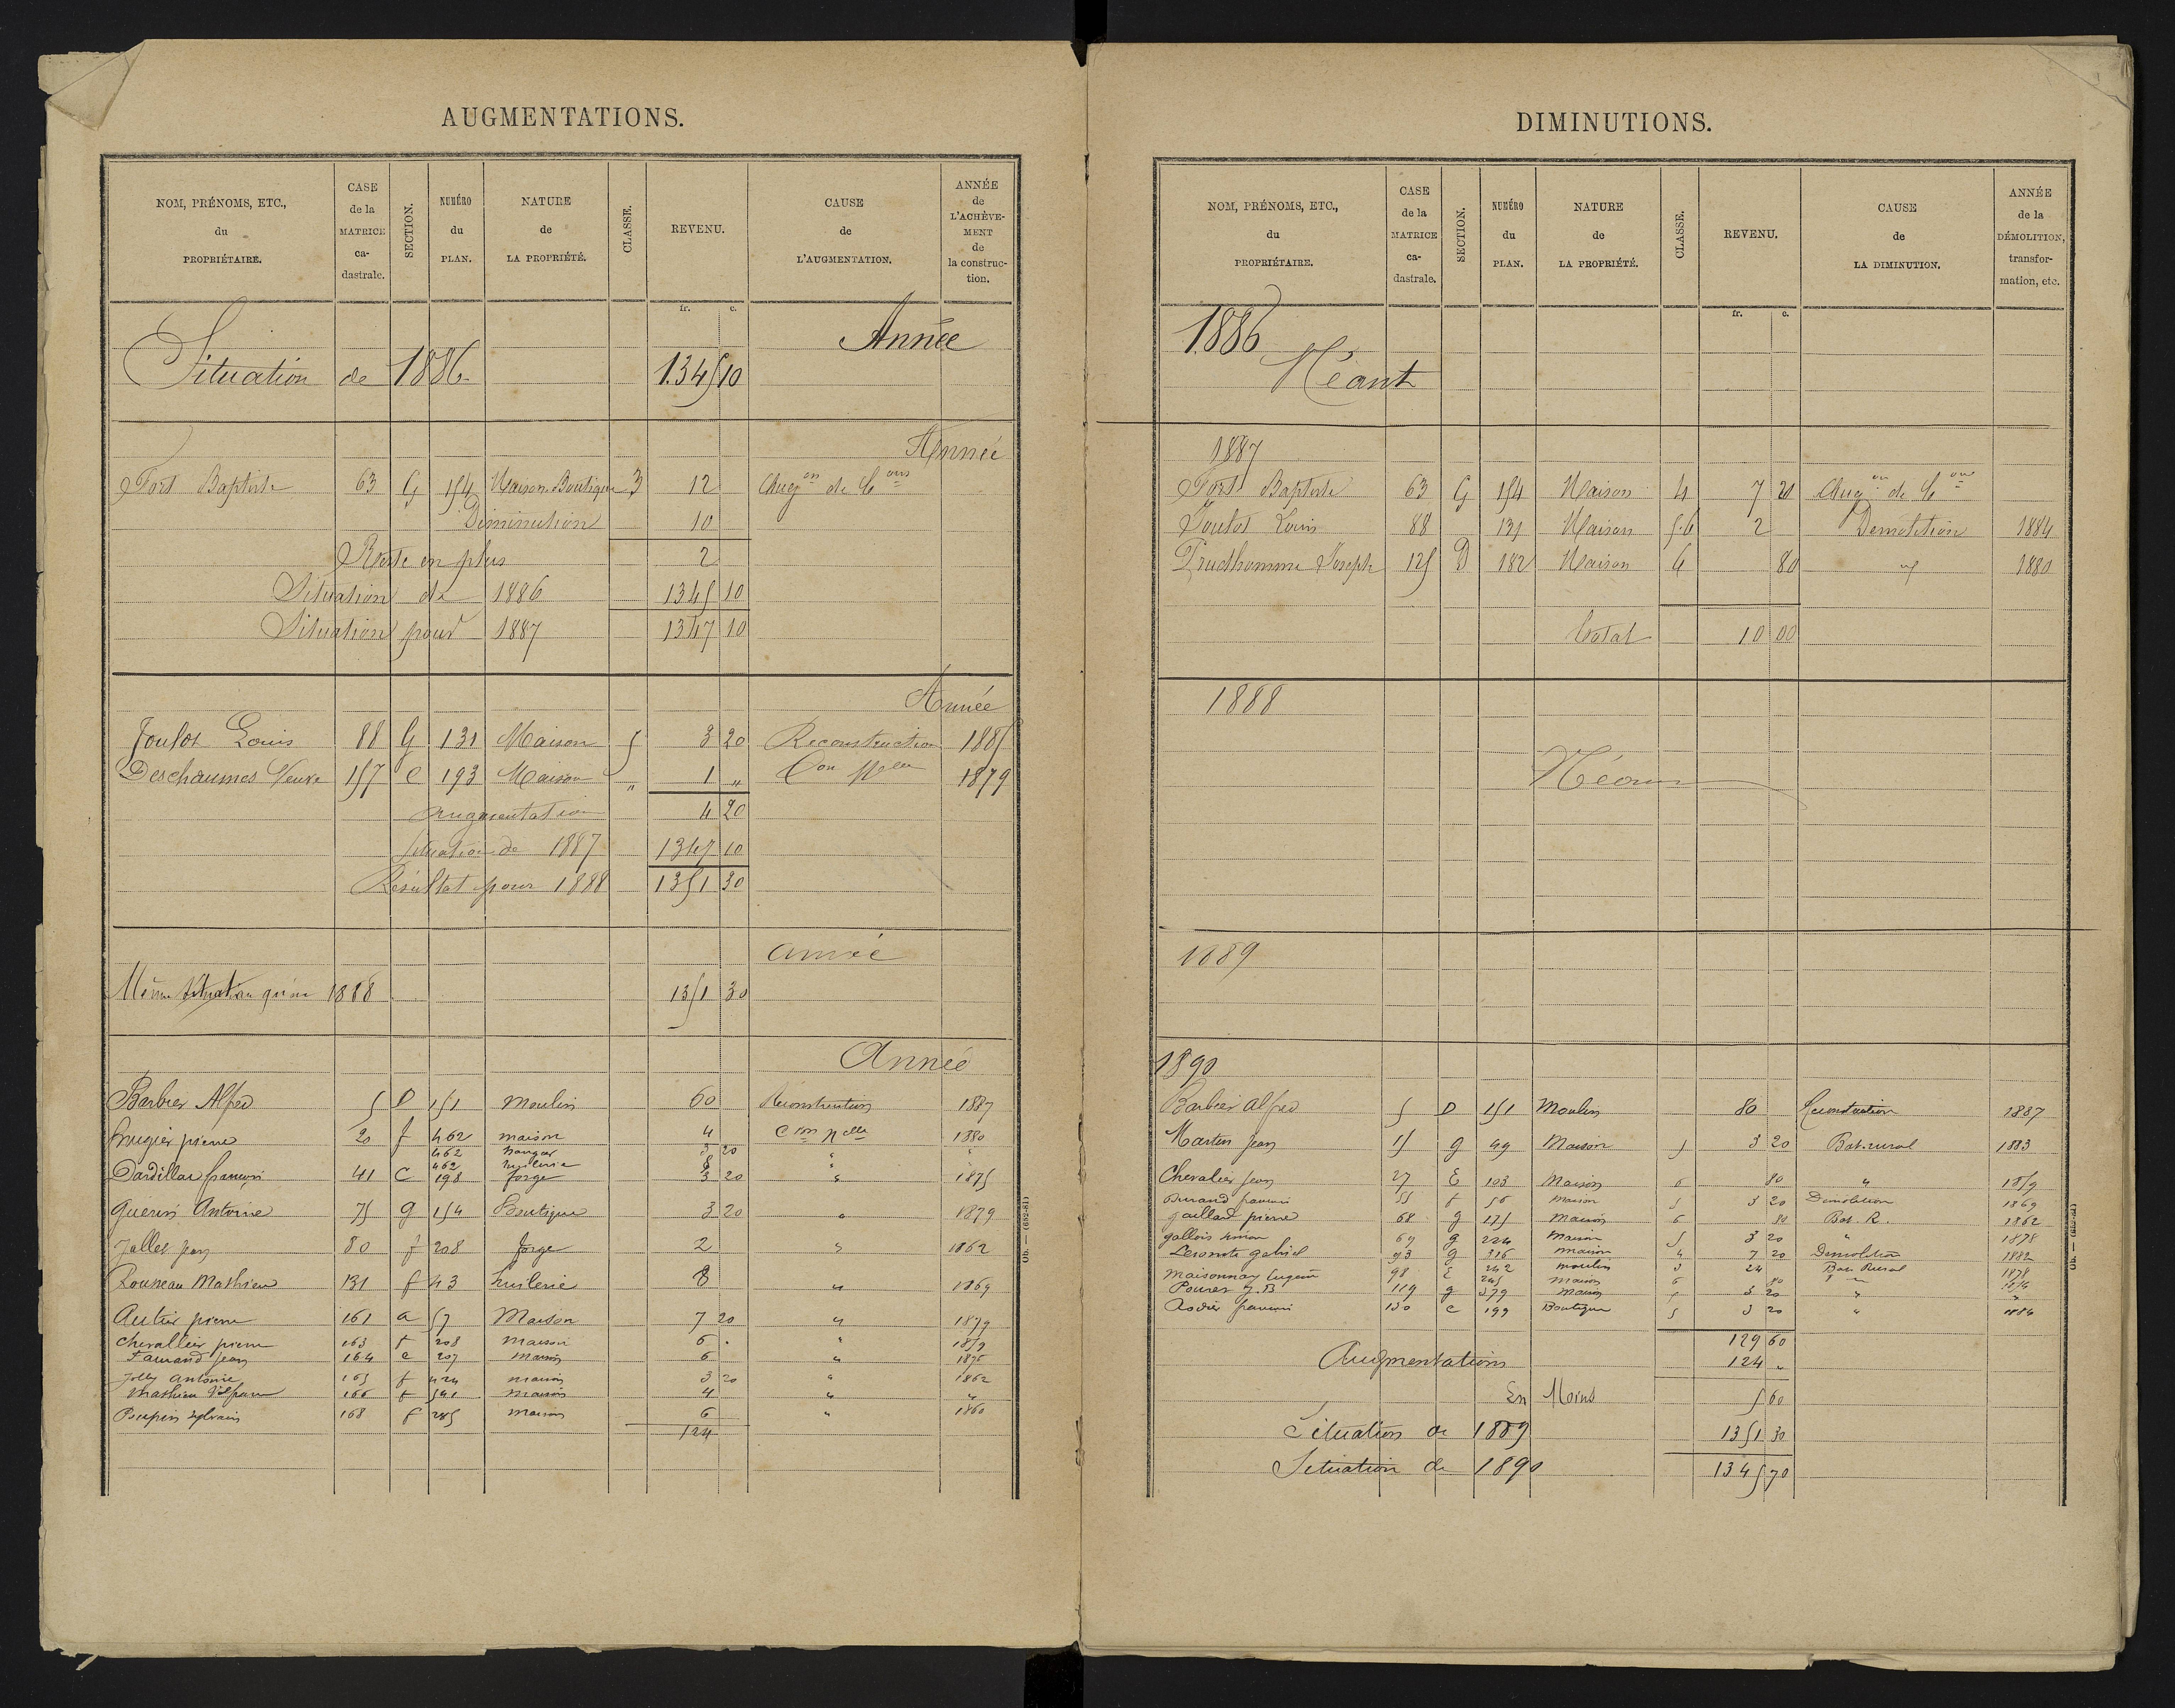 AUGMENTATIONS.
NOM, PRÉNOMS, ETC., du PROPRIÉTAIRE. CASE de la MATRICE ca-dastrale. SECTION. NUMÉRO du PLAN. NATURE de LA PROPRIÉTÉ. CLASSE. REVENU. CAUSE de L'AUGMENTATION. ANNÉE de L'ACHÈVE-MENT de la construc-tion.
fr. c.
Année
Situation de 1886 1345 10
Année
Fort Baptiste 63 G 154 Maison Boutique 3 12 Chug on de C ons
Diminution 10
Reste en plus 2
Situation de 1886 1345 10
Situation pour 1887 1347 10
Année
Foulot Louis 88 G 131 Maison 5 3 20 Reconstruction 1885
Deschaumes Veuve 157 C 193 Maison " 1 " Con Nelle 1879
augmentation 4 20
Situation de 1887 1347 10
Résultat pour 1888 1351 30
année
Même situation qu'en 1888 1351 30
Année
Barbier Alfred 5 D 151 Moulin 60 Réconstruction 1887
Brugier pierre 20 f 462 maison 4 C ion n elle 1880
462 hangar 3 20 " "
462 huilerie 8 "
Dardillac françois 41 C 198 forge 3 20 " 1875
Guerin Antoine 75 g 154 Boutique 3 20 " 1879
Jallet jean 80 f 208 forge 2 " 1862
Rouneau Mathieu 131 f 43 huilerie 8 " 1869
Autier pierre 161 a 57 Maison 7 20 " 1879
Chevallier pierre 163 f 208 maison 6 . " 1859
Famand jean 164 e 207 maison 6 " 1876
Jolly Antoine 165 f 424 maison 3 20 " 1862
Mathieu 166 f 541 maison 4 " "
Poupin sylvain 168 f 285 maison 6 " 1860
124
Ob. — (682-81)
DIMINUTIONS.
NOM, PRÉNOMS, ETC., du PROPRIÉTAIRE. CASE de la MATRICE ca-dastrale. SECTION. NUMÉRO du PLAN. NATURE de LA PROPRIÉTÉ. CLASSE. REVENU. CAUSE de LA DIMINUTION. ANNÉE de la DÉMOLITION, transfor-mation, etc.
fr. c.
1886
Néant
1887
Fort Baptiste 63 G 154 Maison 4 7 20 Chug on de C ons
Foulot Louis 88 131 Maison 5.6 2 Demolition 1884
Prudhomme Joseph 125 D 182 Maison 6 80 " 1880
Total 10 00
1888
Néant
1889
1890
Barbier Alfred 5 D 151 Moulin 80 Reconstruction 1887
Martin Jean 15 g 49 Maison 5 3 20 Bat. rural 1883
Chevalier jean 27 E 103 Maison 6 80 " 1859
Durand francois 55 f 56 maison 5 3 20 Demolition 1869
Gaillard pierre 68 g 175 maison 6 80 Bat. R. 1862
gallois simon 69 g 224 maison 5 3 20 " 1878
Lecomte gabriel 93 g 316 maison 4 7 20 Demolition 1882
Maisonnay Eugène 98 E 242 moulin 3 24 Bat. Rural 1878
245 maison 6 80 "
Pourer J.B 119 g 379 maison 5 3 20 " "
Rodier francois 130 C 199 Boutique 5 3 20 " 1884
129 60
Augmentations 124 "
En Moins 5 60
Situation de 1889 1351 30
Situation de 1890 1345 70